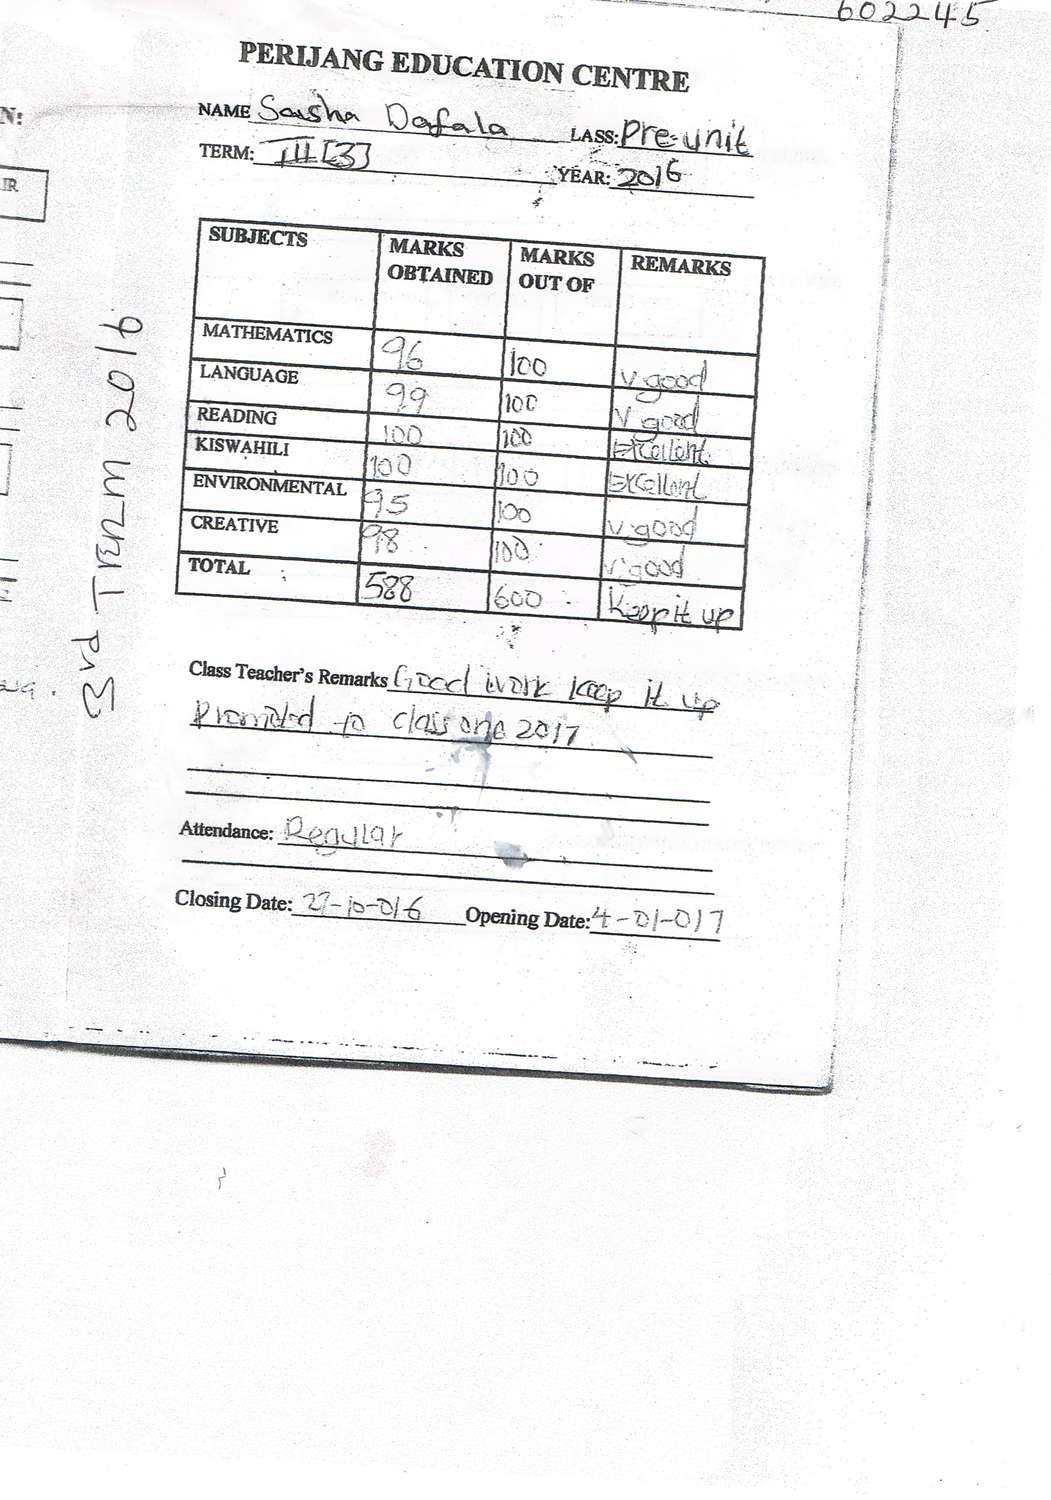 602245
PERIJANG EDUCATION CENTRE
NAME Saisha Dafala LASS: Pre-unit
TERM: III [3] YEAR: 2016
SUBJECTS MARKS OBTAINED MARKS OUT OF REMARKS
MATHEMATICS 96 100 V good
LANGUAGE 99 100 V good
READING 100 100 Excellent.
KISWAHILI 100 100 Excellent
ENVIRONMENTAL 95 100 V.good
CREATIVE 98 100 V.good
TOTAL 588 600 Keep it up
Class Teacher's Remarks Good work keep it up
Promoted to class one 2017
Attendance: Regular
Closing Date: 27-10-016 Opening Date: 4-01-017
3rd TERM 2016
N:
IR